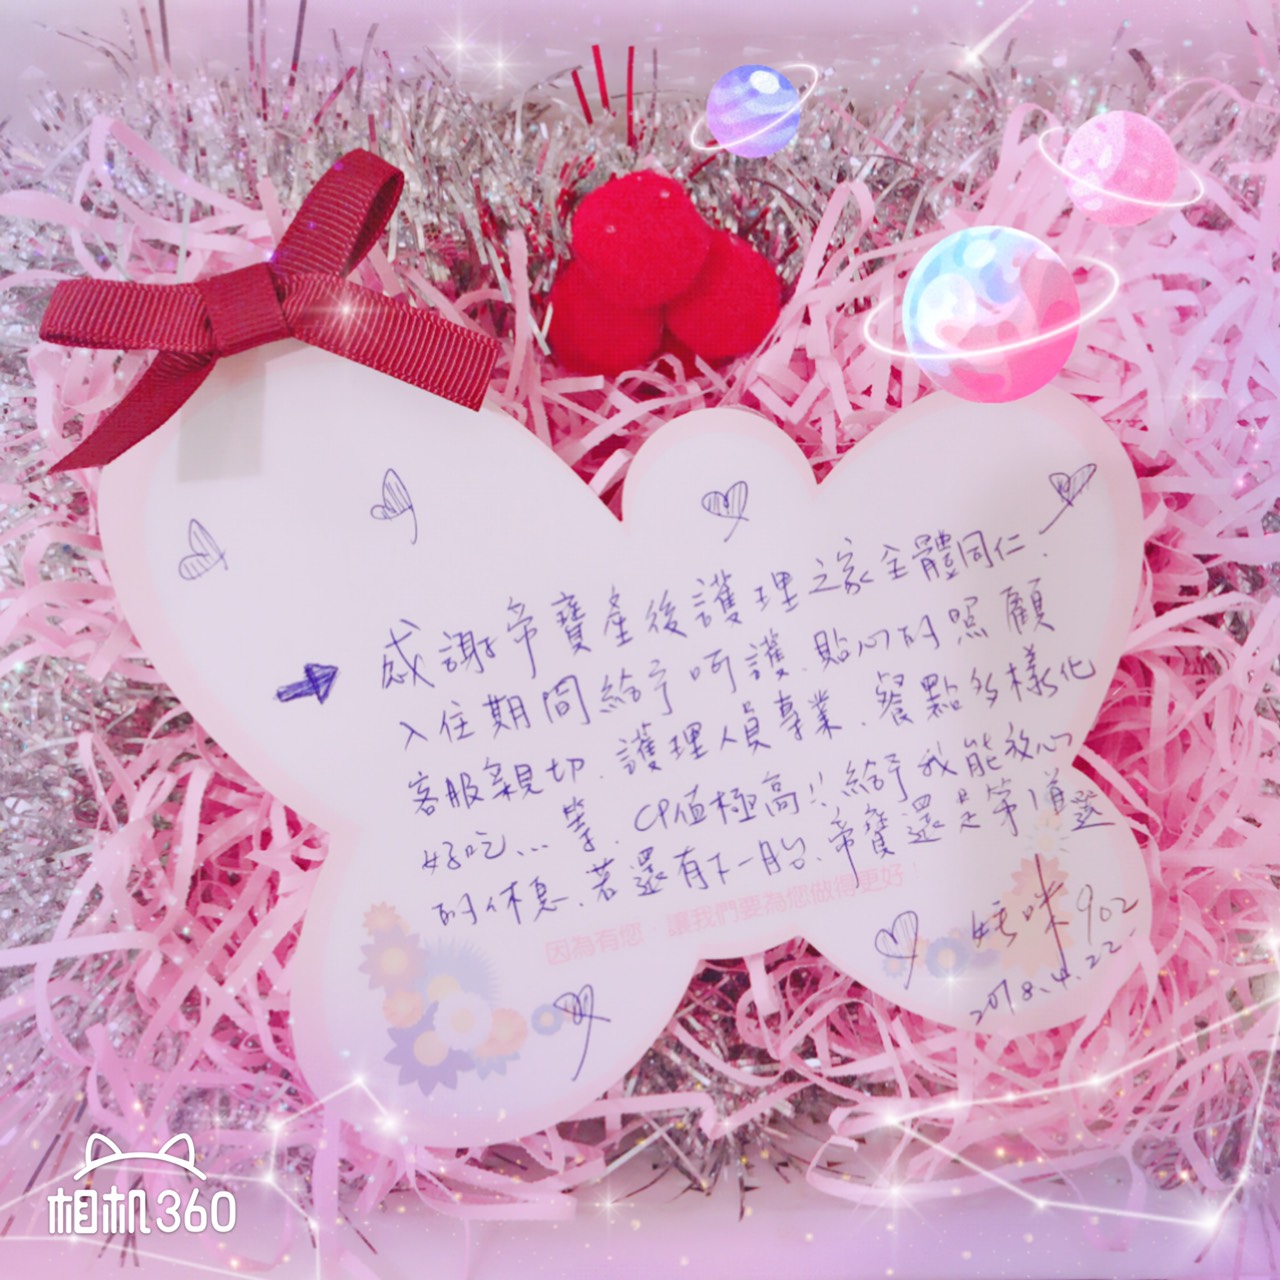 感謝帝寶產後護理之家全體同仁.
入住期間給予呵護、貼心的照顧
客服親切、護理人員專業、餐點多樣化
好吃...等、CP值極高!!給予我能放心
的休息、若還有下一胎、帝寶還是第1首選
因為有您，讓我們要為您做得更好！
咪902
2018.4.22.
相机360